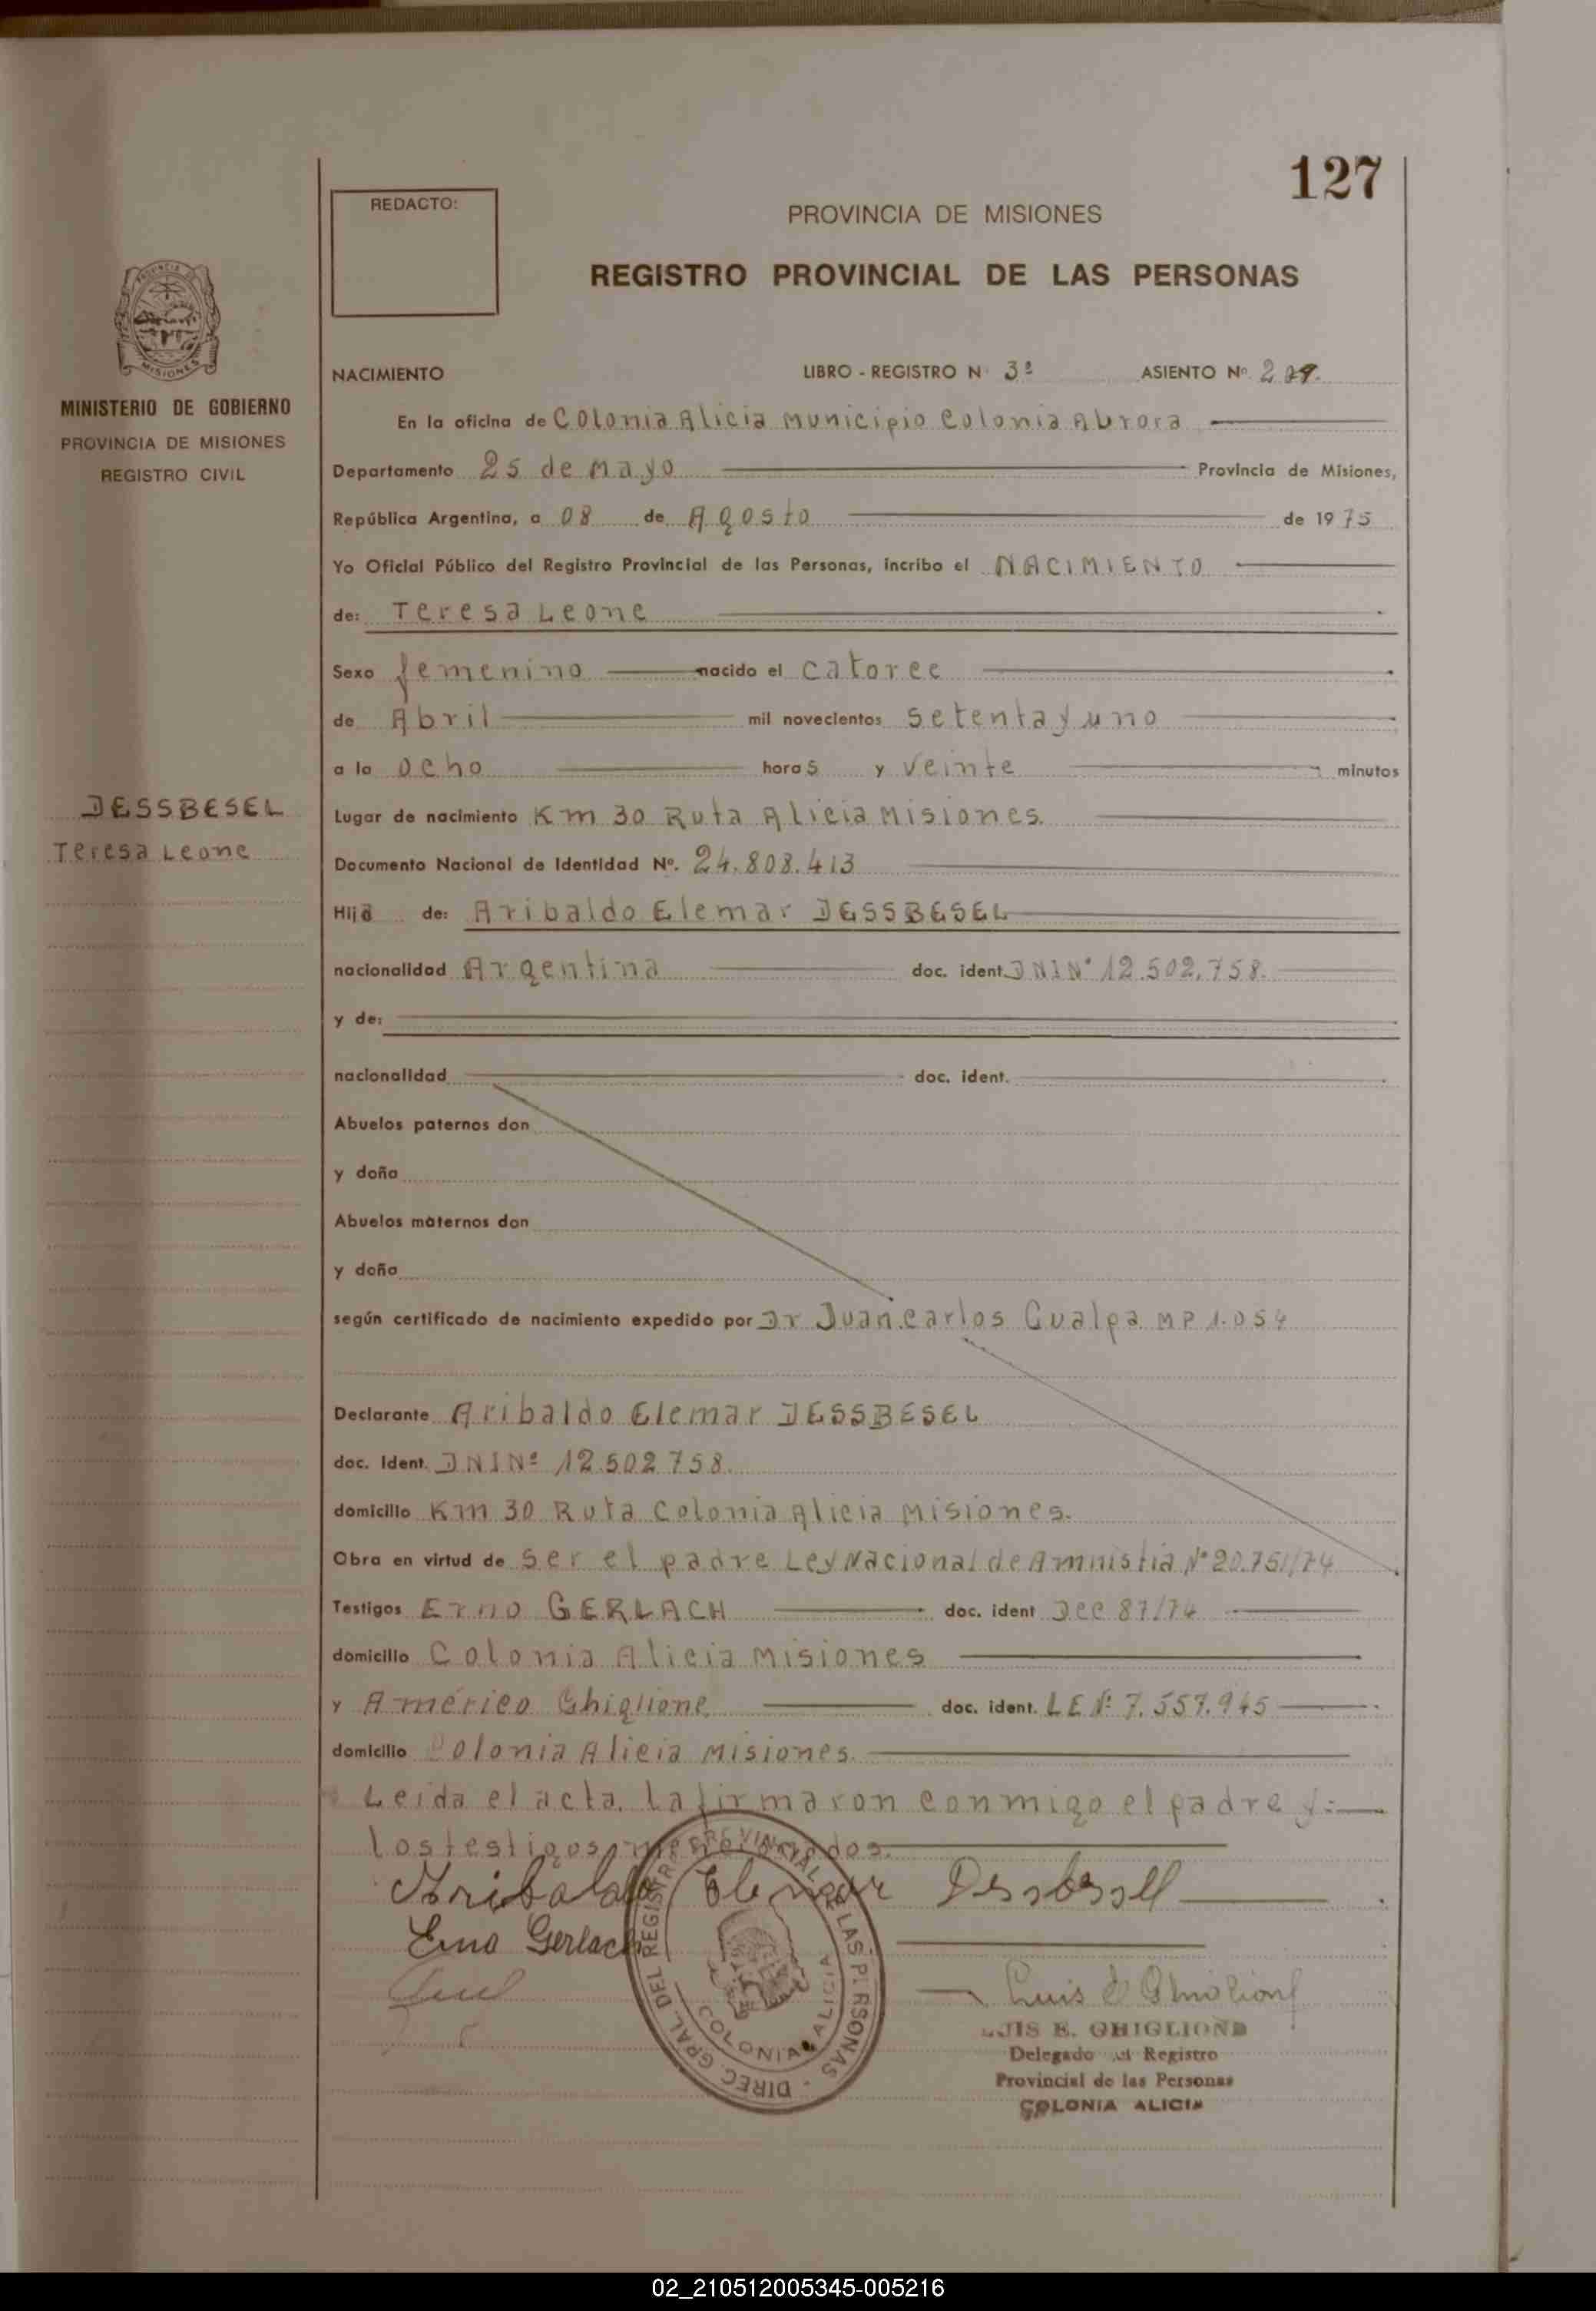 127
REDACTO:
PROVINCIA DE MISIONES
REGISTRO PROVINCIAL DE LAS PERSONAS
MISIONES
MINISTERIO DE GOBIERNO
PROVINCIA DE MISIONES
REGISTRO CIVIL
NACIMIENTO LIBRO - REGISTRO N 3º ASIENTO Nº
En la oficina de Colonia Alicia Municipio Colonia Aurora
Departamento 25 de Mayo Provincia de Misiones,
República Argentina, a 08 de Agosto de 1975
Yo Oficial Público del Registro Provincial de las Personas, incribo el NACIMIENTO
de: Teresa Leone
Sexo femenino nacido el catorce
de Abril mil novecientos setenta y uno
a la ocho horas y veinte minutos
DESSBESEL
Teresa Leone
Lugar de nacimiento Km 30 Ruta Alicia Misiones.
Documento Nacional de Identidad Nº. 24.808.413
Hija de: Aribaldo Elemar DESSBESEL
nacionalidad Argentina doc. ident. DNI Nº 12.502.758.
y de:
nacionalidad doc. ident.
Abuelos paternos don
y doña
Abuelos maternos don
y doña
según certificado de nacimiento expedido por Dr Juan carlos Gualpa MP 1.054
Declarante Aribaldo Elemar DESSBESEL
doc. Ident. DNI Nº 12.502.758.
domicilio Km 30 Ruta Colonia Alicia Misiones.
Obra en virtud de ser el padre Ley Nacional de Amnistia Nº 20.751/74
Testigos Erno GERLACH doc. ident Dec 87/74
domicilio Colonia Alicia Misiones
y Américo Ghiglione doc. ident. LE Nº 7.557.945
domicilio Colonia Alicia Misiones.
Leida el acta. La firmaron conmigo el padre y
los testigos mencionados.
Aribaldo Elemar Dessbesell
Erno Gerlach
DIREC. GRAL. DEL REGISTRO PROVINCIAL DE LAS PERSONAS
COLONIA ALICIA
Luis E Ghiglione
LUIS E. GHIGLIONE
Delegado del Registro
Provincial de las Personas
COLONIA ALICIA
02_210512005345-005216